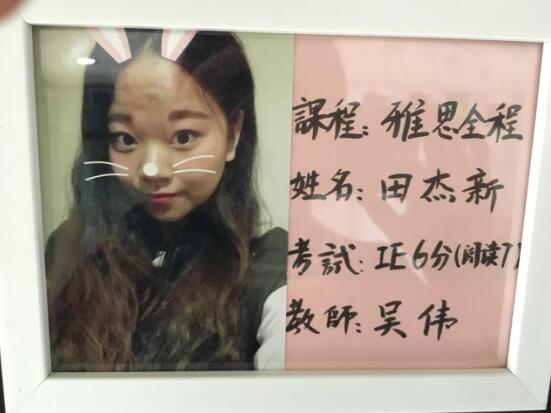 課程: 雅思全程
姓名: 田杰新
考試: IE 6分(阅读7)
教師: 吴伟